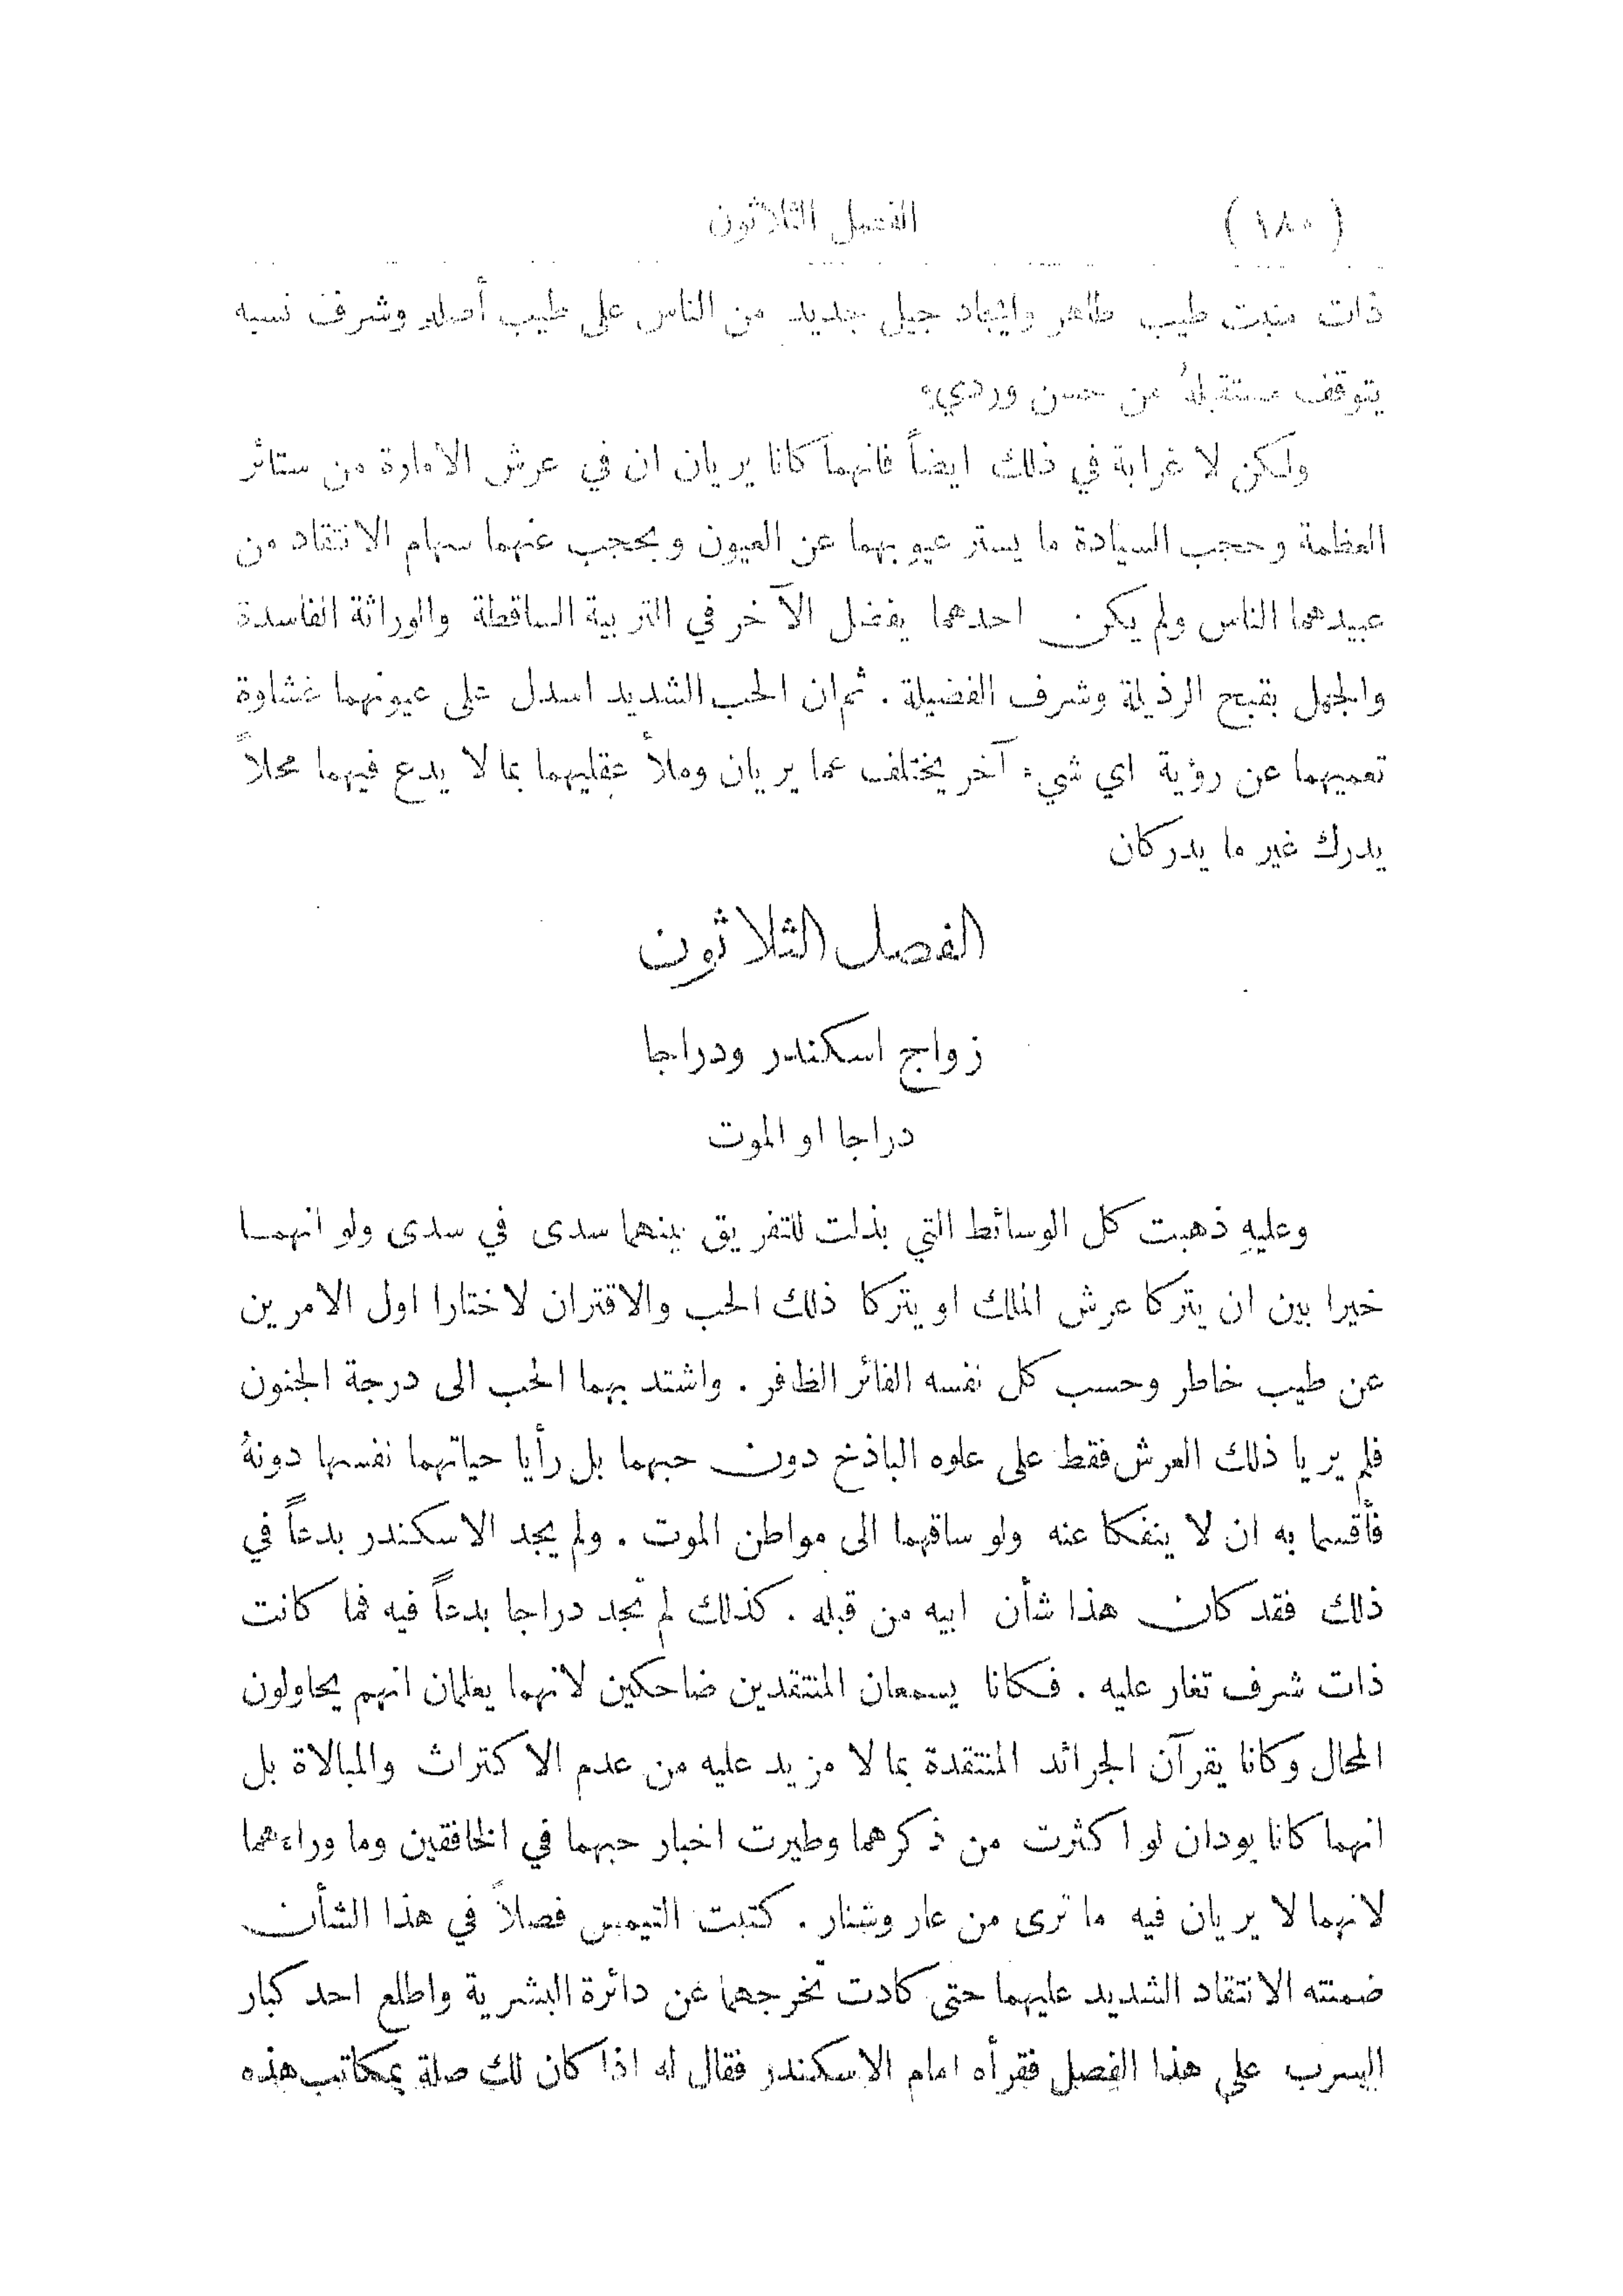 (١٨٠) الفصل الثلاثون
ذات منبت طيب طاهر وايجاد جيل جديد من الناس على طيب أصله وشرف نسبه
يتوقف مستقبلهُ من حسن ورديء
ولكن لا غرابة في ذلك ايضاً فانهما كانا يريان ان في عرش الامارة من ستائر
العظمة وحجب السيادة ما يستر عيوبهما عن العيون ويحجب عنهما سهام الانتقاد من
عبيدهما الناس ولم يكن احدهما يفضل الآخر في التربية الساقطة والوراثة الفاسدة
والجهل بقبح الرذيلة وشرف الفضيلة . ثم ان الحب الشديد اسدل على عيونهما غشاوة
تعميهما عن رؤية اي شيء آخر يختلف عما يريان وملأ عقليهما بما لا يدع فيهما محلاً
يدرك غير ما يدركان
الفصل الثلاثون
زواج اسكندر ودراجا
دراجا او الموت
وعليهِ ذهبت كل الوسائط التي بذلت للتفريق بينهما سدى في سدى ولو انهما
خيرا بين ان يتركا عرش الملك او يتركا ذلك الحب والاقتران لاختارا اول الامرين
عن طيب خاطر وحسب كل نفسه الفائز الظافر . واشتد بهما الحب الى درجة الجنون
فلم يريا ذلك العرش فقط على علوه الباذخ دون حبهما بل رأيا حياتهما نفسها دونهُ
فأقسما به ان لا ينفكا عنه ولو ساقهما الى مواطن الموت . ولم يجد الاسكندر بدعاً في
ذلك فقد كان هذا شأن ابيه من قبله . كذلك لم تجد دراجا بدعاً فيه فما كانت
ذات شرف تغار عليه . فكانا يسمعان المنتقدين ضاحكين لانهما يعلمان انهم يحاولون
المحال وكانا يقرآن الجرائد المنتقدة بما لا مزيد عليه من عدم الاكتراث والمبالاة بل
انهما كانا يودان لو اكثرت من ذكرهما وطيرت اخبار حبهما في الخافقين وما وراءهما
لانهما لا يريان فيه ما ترى من عار وشنار . كتبت التيمس فصلاً في هذا الشأن
ضمنته الانتقاد الشديد عليهما حتى كادت تخرجهما عن دائرة البشرية واطلع احد كبار
السرب على هذا الفصل فقرأه امام الاسكندر فقال له اذا كان لك صلة بمكاتب هذه